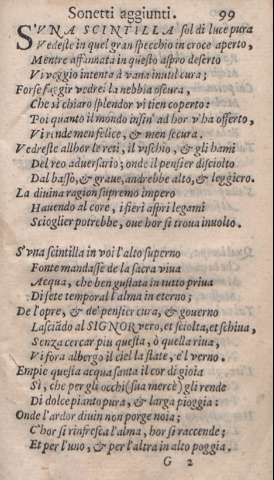 Sonetti aggiunti. 99
S'VNA SCINTILLA sol di luce pura
Vedeste in quel gran specchio in croce aperto,
Mentre affannata in questo aspro deserto
Vi veggio intenta à vana inutil cura;
Forse fia gir vedrei la nebbia oscura,
Che sì chiaro splendor vi tien coperto:
Poi quanto il mondo insin' ad hor v'ha offerto,
Vi rende men felice, & men secura.
Vedreste allhor le reti, il vischio, & gli hami
Del reo aduersario; onde il pensier disciolto
Dal basso, & graue, andrebbe alto, & leggiero.
La diuina ragion supremo impero
Hauendo al core, i fieri aspri legami
Scioglier potrebbe, oue hor si troua inuolto.
S'vna scintilla in voi l'alto superno
Fonte mandasse de la sacra viua
Acqua, che ben gustata in tutto priua
Di sete temporal l'alma in eterno;
De l'opre, & de' pensier cura, & gouerno
Lasciādo al SIGNOR vero, et sciolta, et schiua,
Senza cercar piu questa, ò quella riua,
Vi fora albergo il ciel la state, e'l verno.
Empie questa acqua santa il cor di gioia
Sì, che per gli occhi (sua mercè) gli rende
Di dolce pianto pura, & larga pioggia:
Onde l'ardor diuin non porge noia;
C'hor si rinfresca l'alma, hor si raccende;
Et per l'uno, & per l'altra in alto poggia.
G 2